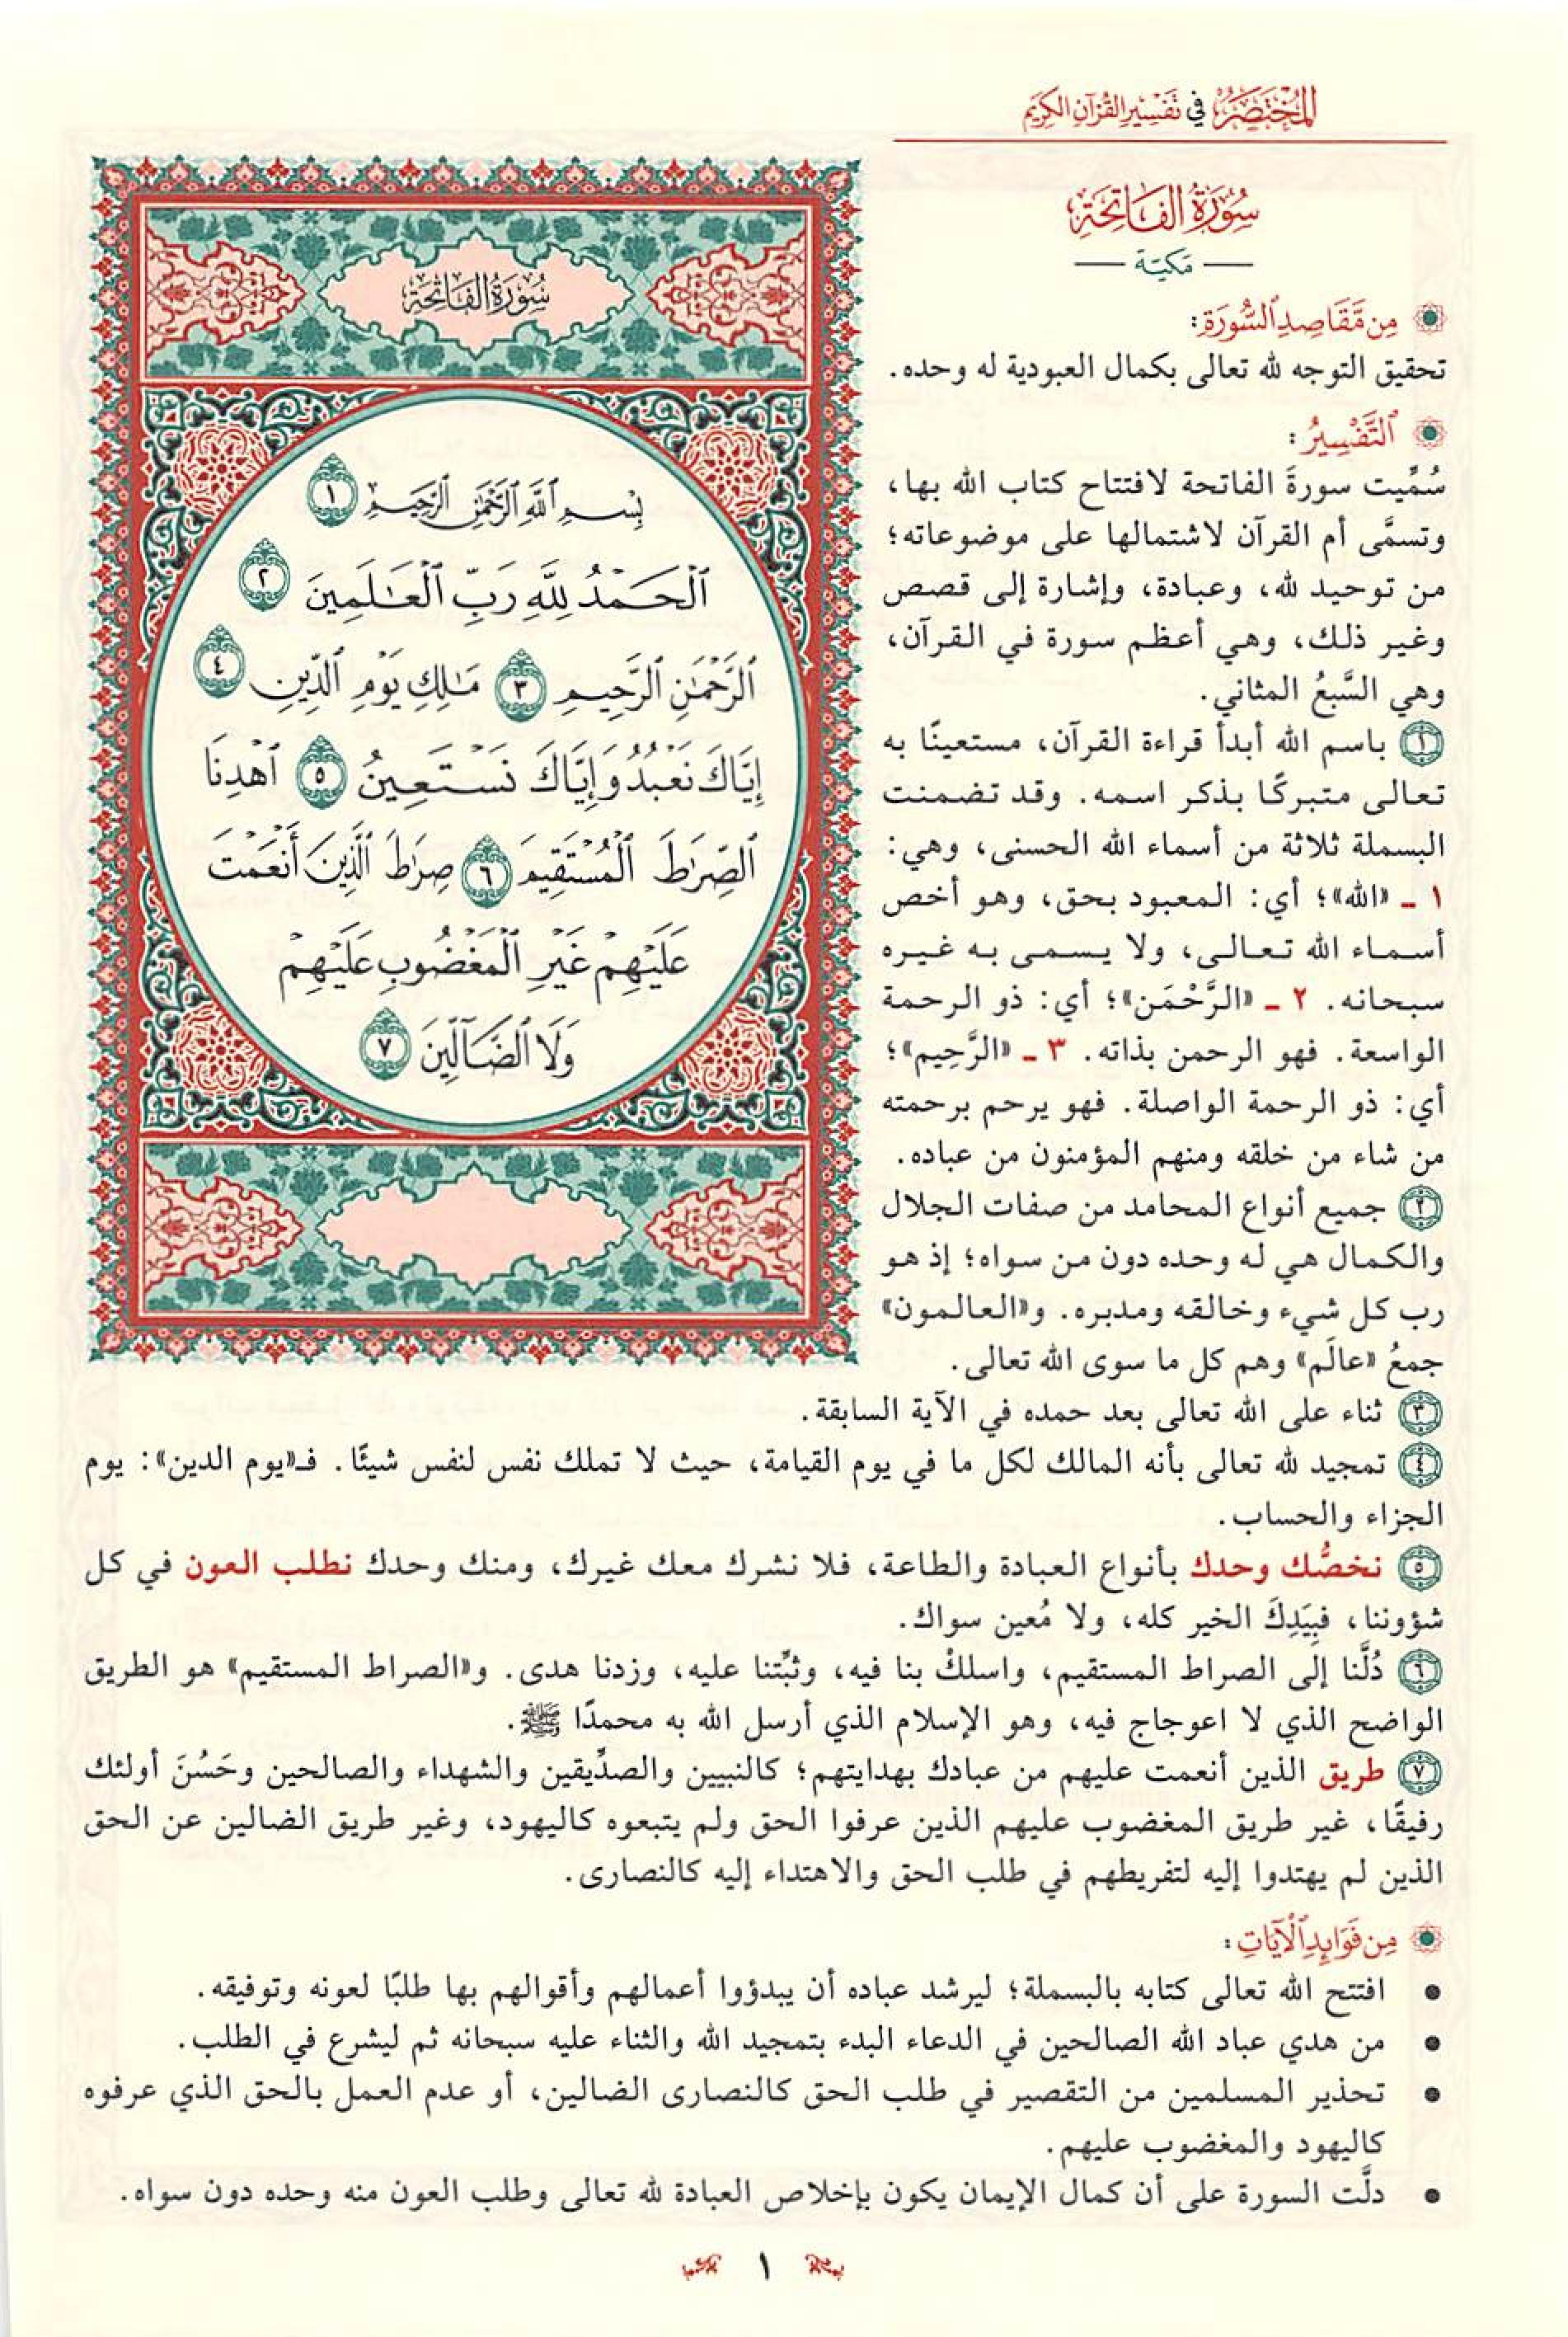 المختصر في تفسير القرآن الكريم
سورة الفاتحة
مكية
من مقاصد السورة:
تحقيق التوجه لله تعالى بكمال العبودية له وحده.
التفسير:
سُمِّيت سورةَ الفاتحة لافتتاح كتاب الله بها،
وتسمَّى أم القرآن لاشتمالها على موضوعاته؛
من توحيد لله، وعبادة، وإشارة إلى قصص
وغير ذلك، وهي أعظم سورة في القرآن،
وهي السَّبعُ المثاني.
١ باسم الله أبدأ قراءة القرآن، مستعينًا به
تعالى متبركًا بذكر اسمه. وقد تضمنت
البسملة ثلاثة من أسماء الله الحسنى، وهي:
١ ـ «الله»؛ أي: المعبود بحق، وهو أخص
أسماء الله تعالى، ولا يسمى به غيره
سبحانه. ٢ ـ «الرَّحْمَن»؛ أي: ذو الرحمة
الواسعة. فهو الرحمن بذاته. ٣ ـ «الرَّحِيم»؛
أي: ذو الرحمة الواصلة. فهو يرحم برحمته
من شاء من خلقه ومنهم المؤمنون من عباده.
٢ جميع أنواع المحامد من صفات الجلال
والكمال هي له وحده دون من سواه؛ إذ هو
رب كل شيء وخالقه ومدبره. و«العالمون»
جمعُ «عالَم» وهم كل ما سوى الله تعالى.
سُورَةُ الفَاتِحَةِ
بِسْمِ ٱللَّهِ ٱلرَّحْمَٰنِ ٱلرَّحِيمِ ١
ٱلْحَمْدُ لِلَّهِ رَبِّ ٱلْعَٰلَمِينَ ٢
ٱلرَّحْمَٰنِ ٱلرَّحِيمِ ٣ مَٰلِكِ يَوْمِ ٱلدِّينِ ٤
إِيَّاكَ نَعْبُدُ وَإِيَّاكَ نَسْتَعِينُ ٥ ٱهْدِنَا
ٱلصِّرَٰطَ ٱلْمُسْتَقِيمَ ٦ صِرَٰطَ ٱلَّذِينَ أَنْعَمْتَ
عَلَيْهِمْ غَيْرِ ٱلْمَغْضُوبِ عَلَيْهِمْ
وَلَا ٱلضَّآلِّينَ ٧
٣ ثناء على الله تعالى بعد حمده في الآية السابقة.
٤ تمجيد لله تعالى بأنه المالك لكل ما في يوم القيامة، حيث لا تملك نفس لنفس شيئًا. فـ«يوم الدين»: يوم
الجزاء والحساب.
٥ نخصُّك وحدك بأنواع العبادة والطاعة، فلا نشرك معك غيرك، ومنك وحدك نطلب العون في كل
شؤوننا، فبِيَدِكَ الخير كله، ولا مُعين سواك.
٦ دُلَّنا إلى الصراط المستقيم، واسلكْ بنا فيه، وثبِّتنا عليه، وزدنا هدى. و«الصراط المستقيم» هو الطريق
الواضح الذي لا اعوجاج فيه، وهو الإسلام الذي أرسل الله به محمدًا ﷺ.
٧ طريق الذين أنعمت عليهم من عبادك بهدايتهم؛ كالنبيين والصدِّيقين والشهداء والصالحين وحَسُنَ أولئك
رفيقًا، غير طريق المغضوب عليهم الذين عرفوا الحق ولم يتبعوه كاليهود، وغير طريق الضالين عن الحق
الذين لم يهتدوا إليه لتفريطهم في طلب الحق والاهتداء إليه كالنصارى.
من فوائد الآيات:
• افتتح الله تعالى كتابه بالبسملة؛ ليرشد عباده أن يبدؤوا أعمالهم وأقوالهم بها طلبًا لعونه وتوفيقه.
• من هدي عباد الله الصالحين في الدعاء البدء بتمجيد الله والثناء عليه سبحانه ثم ليشرع في الطلب.
• تحذير المسلمين من التقصير في طلب الحق كالنصارى الضالين، أو عدم العمل بالحق الذي عرفوه
كاليهود والمغضوب عليهم.
• دلَّت السورة على أن كمال الإيمان يكون بإخلاص العبادة لله تعالى وطلب العون منه وحده دون سواه.
١